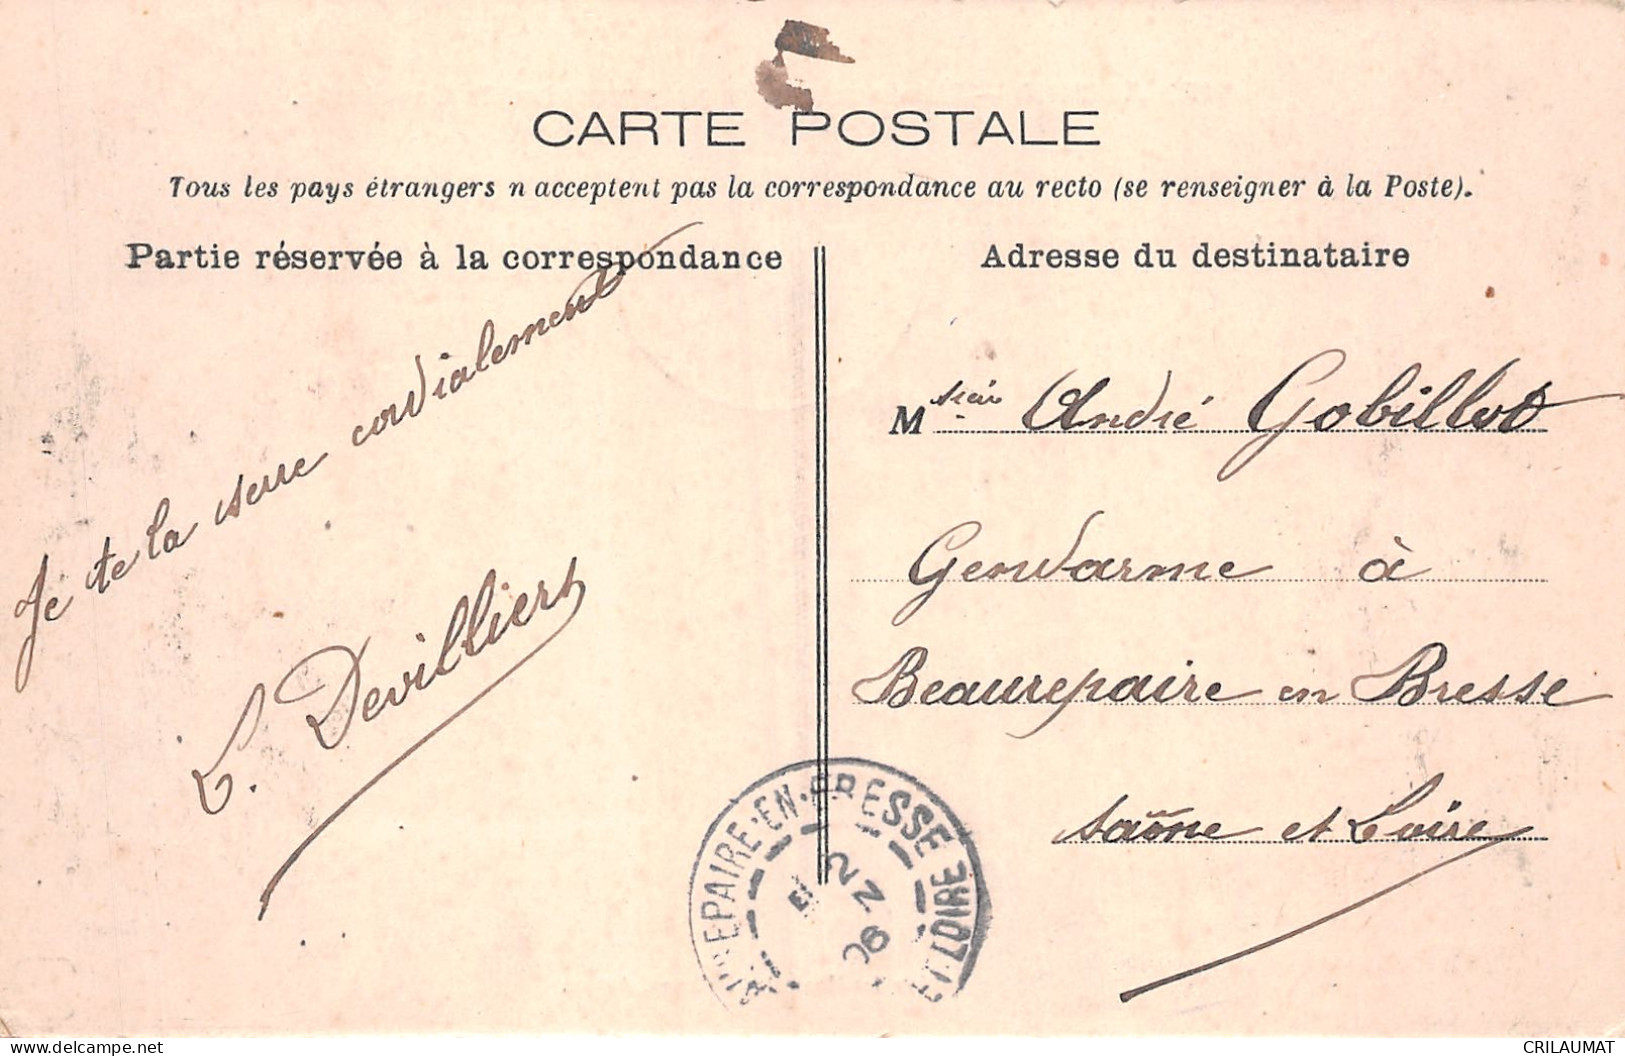 CARTE POSTALE
Tous les pays étrangers n'acceptent pas la correspondance au recto (se renseigner à la Poste).
Partie réservée à la correspondance
Je te la serre cordialement
L. Devilliers
Adresse du destinataire
Msieur André Gobillot
Gendarme à
Beaurepaire en Bresse
Saône et Loire
EPAIRE-EN-BRESSE
ET LOIRE
2
06
CRILAUMAT